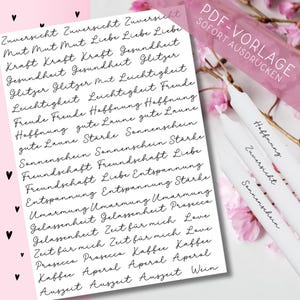 Zuversicht Zuversicht Zuversicht
Mut Mut Mut Liebe Liebe Liebe
Kraft Kraft Kraft Gesundheit
Gesundheit Gesundheit Glitzer
Glitzer Glitzer Mut Leichtigkeit
Leichtigkeit Leichtigkeit Freude
Freude Freude Hoffnung Hoffnung
Hoffnung gute Laune gute Laune
gute Laune Stärke Sonnenschein
Sonnenschein Sonnenschein Stärke
Freundschaft Freundschaft Liebe
Freundschaft Entspannung Stärke
Entspannung Entspannung
Umarmung Umarmung Umarmung
Gelassenheit Gelassenheit Prosecco
Gelassenheit Zeit für mich Love
Zeit für mich Zeit für mich Love
Prosecco Prosecco Kaffee Kaffee
Kaffee Aperol Aperol Aperol
Auszeit Auszeit Auszeit Wein
PDF-VORLAGE
SOFORT AUSDRUCKEN
Hoffnung
Zuversicht
Sonnenschein